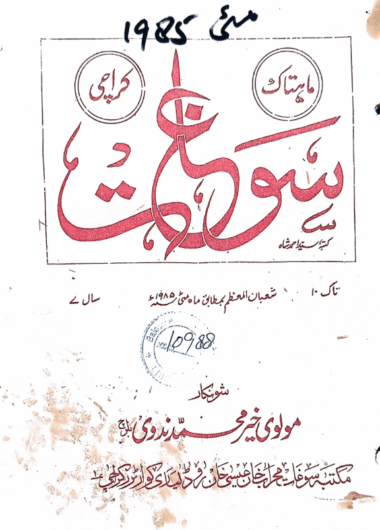 مئی 1985
ماہتاک
کراچی
سوغات
کتبہ سید احمد شاہ
تاک ۱۰ شعبان المعظم بمطابق ماہ مئی سنہ ۱۹۸۵ء سال ۷
10988
شونکار
مولوی خیر محمد ندوی
مکتبہ سوغات محراب خان عیسیٰ خان روڈ لیاری کوارٹرز کراچی